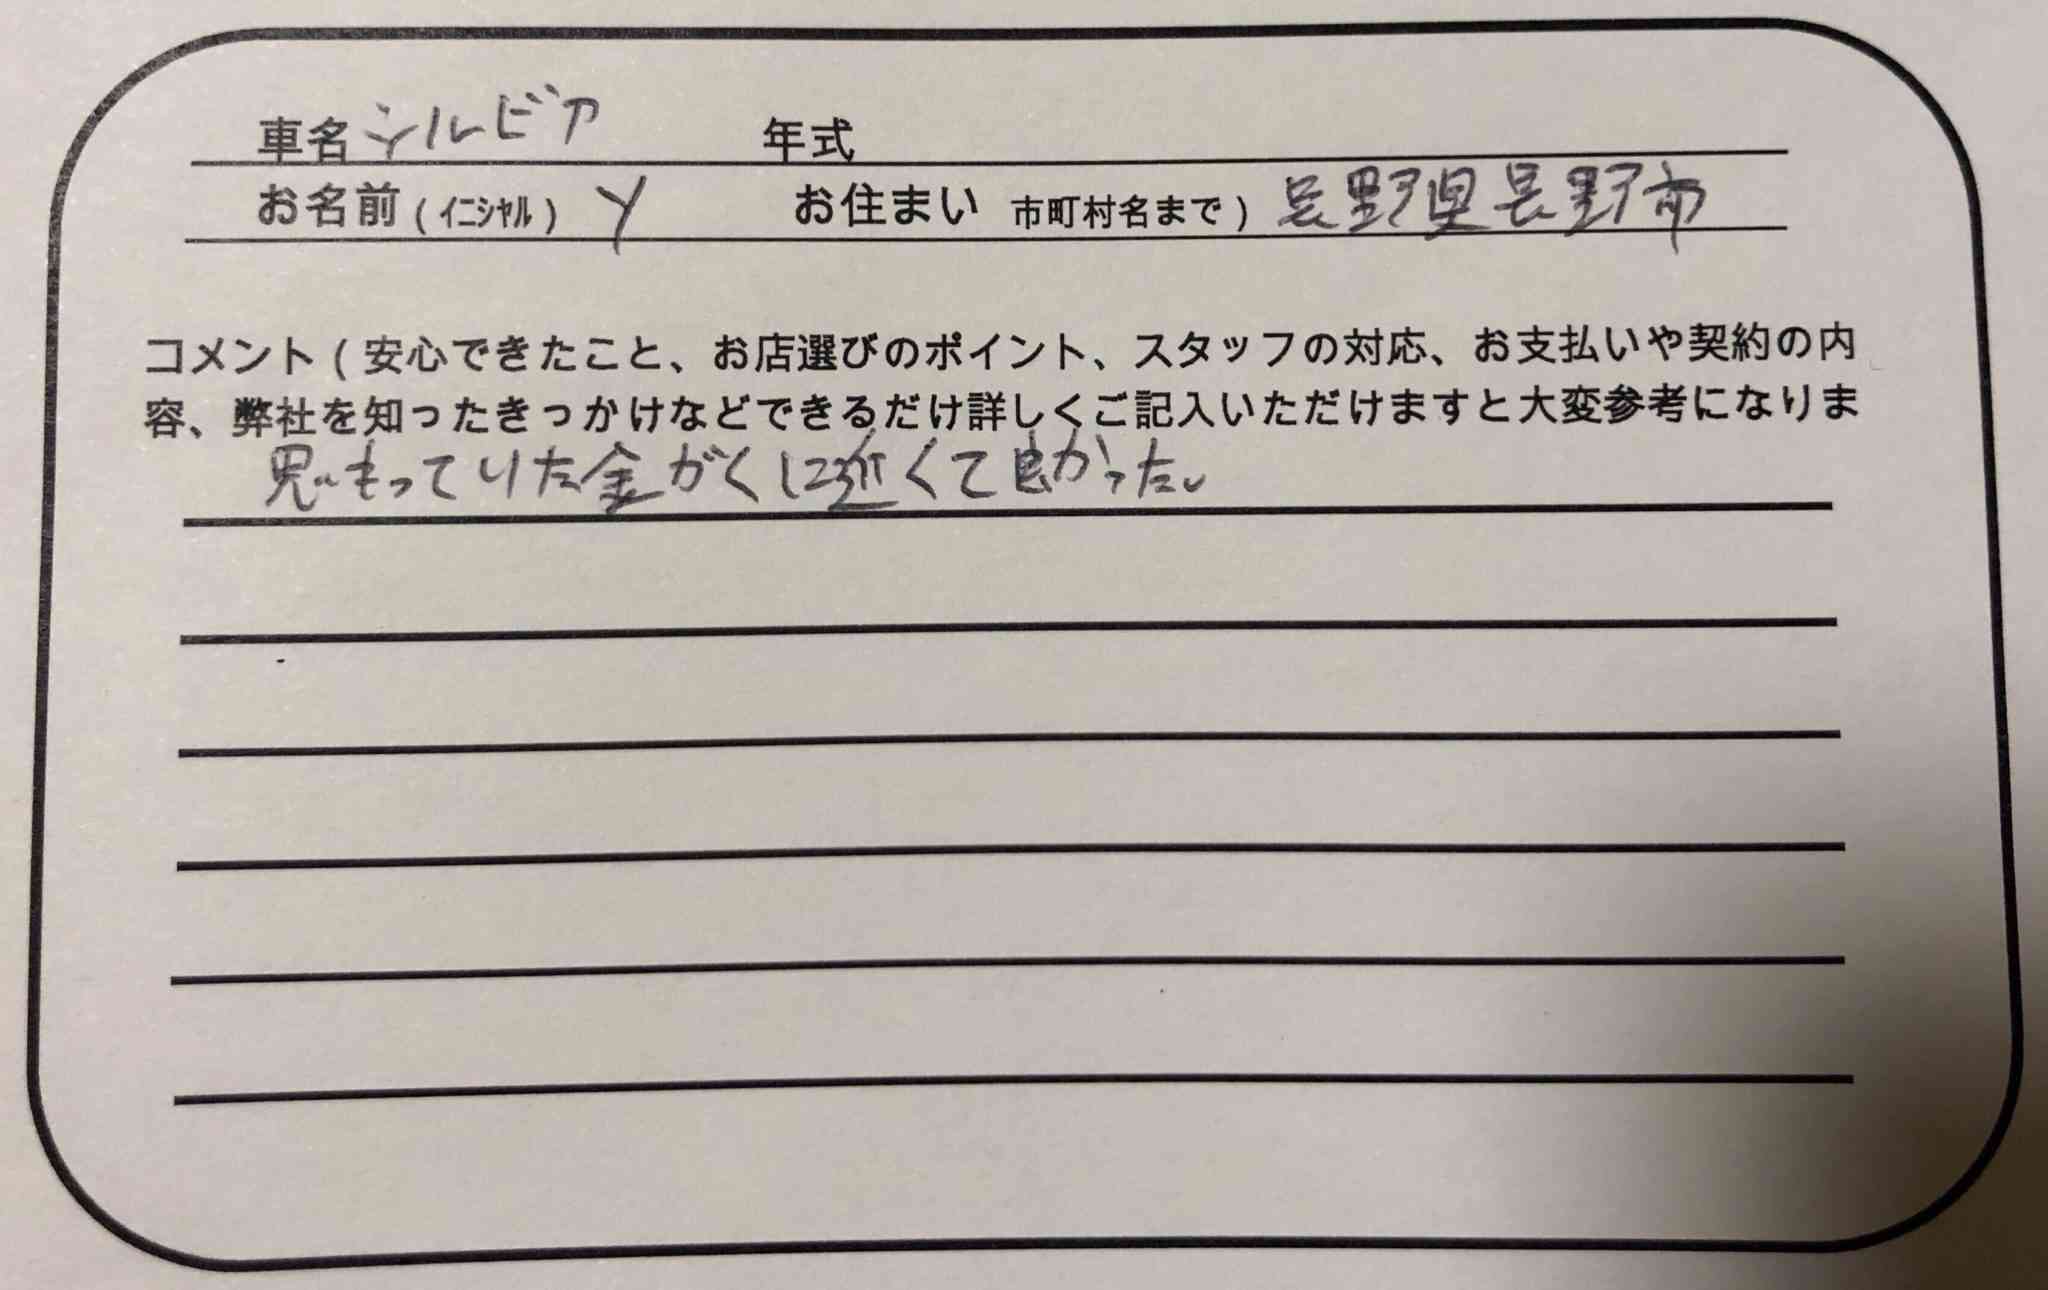 車名 シルビア 年式
お名前 (イニシャル) Y お住まい 市町村名まで) 長野県長野市
コメント (安心できたこと、お店選びのポイント、スタッフの対応、お支払いや契約の内
容、弊社を知ったきっかけなどできるだけ詳しくご記入いただけますと大変参考になりま
思もっていた金がくに近くて良かった。